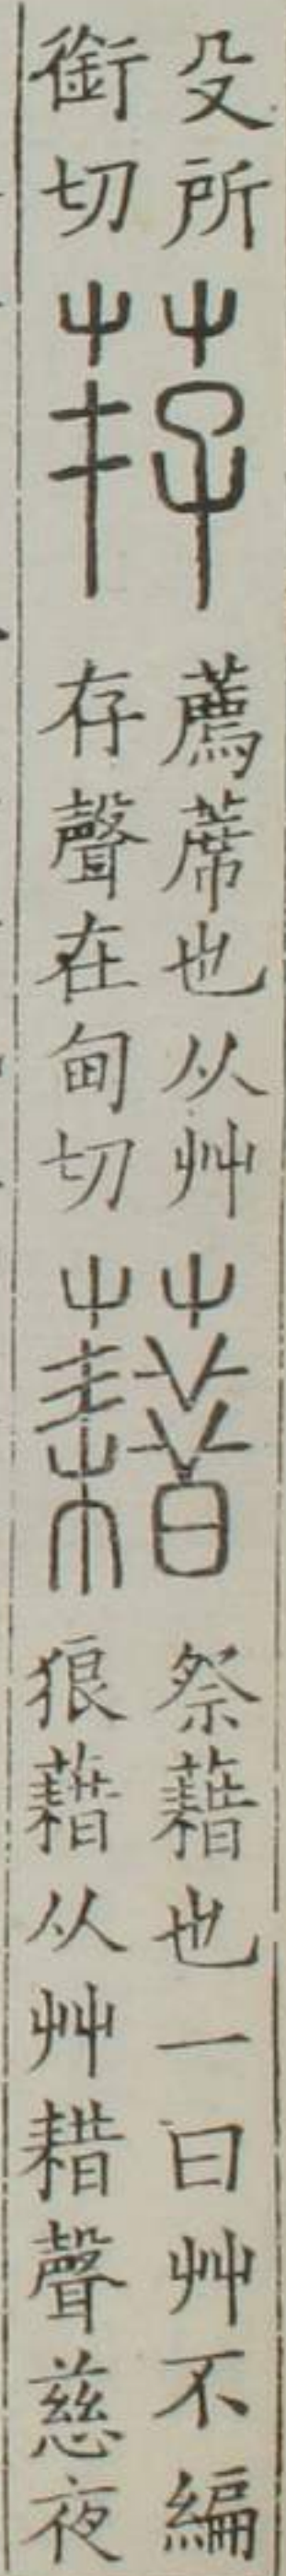 殳所
銜切
荐
薦蓆也从艸
存聲在甸切
藉
祭藉也一曰艸不編
狼藉从艸耤聲慈夜